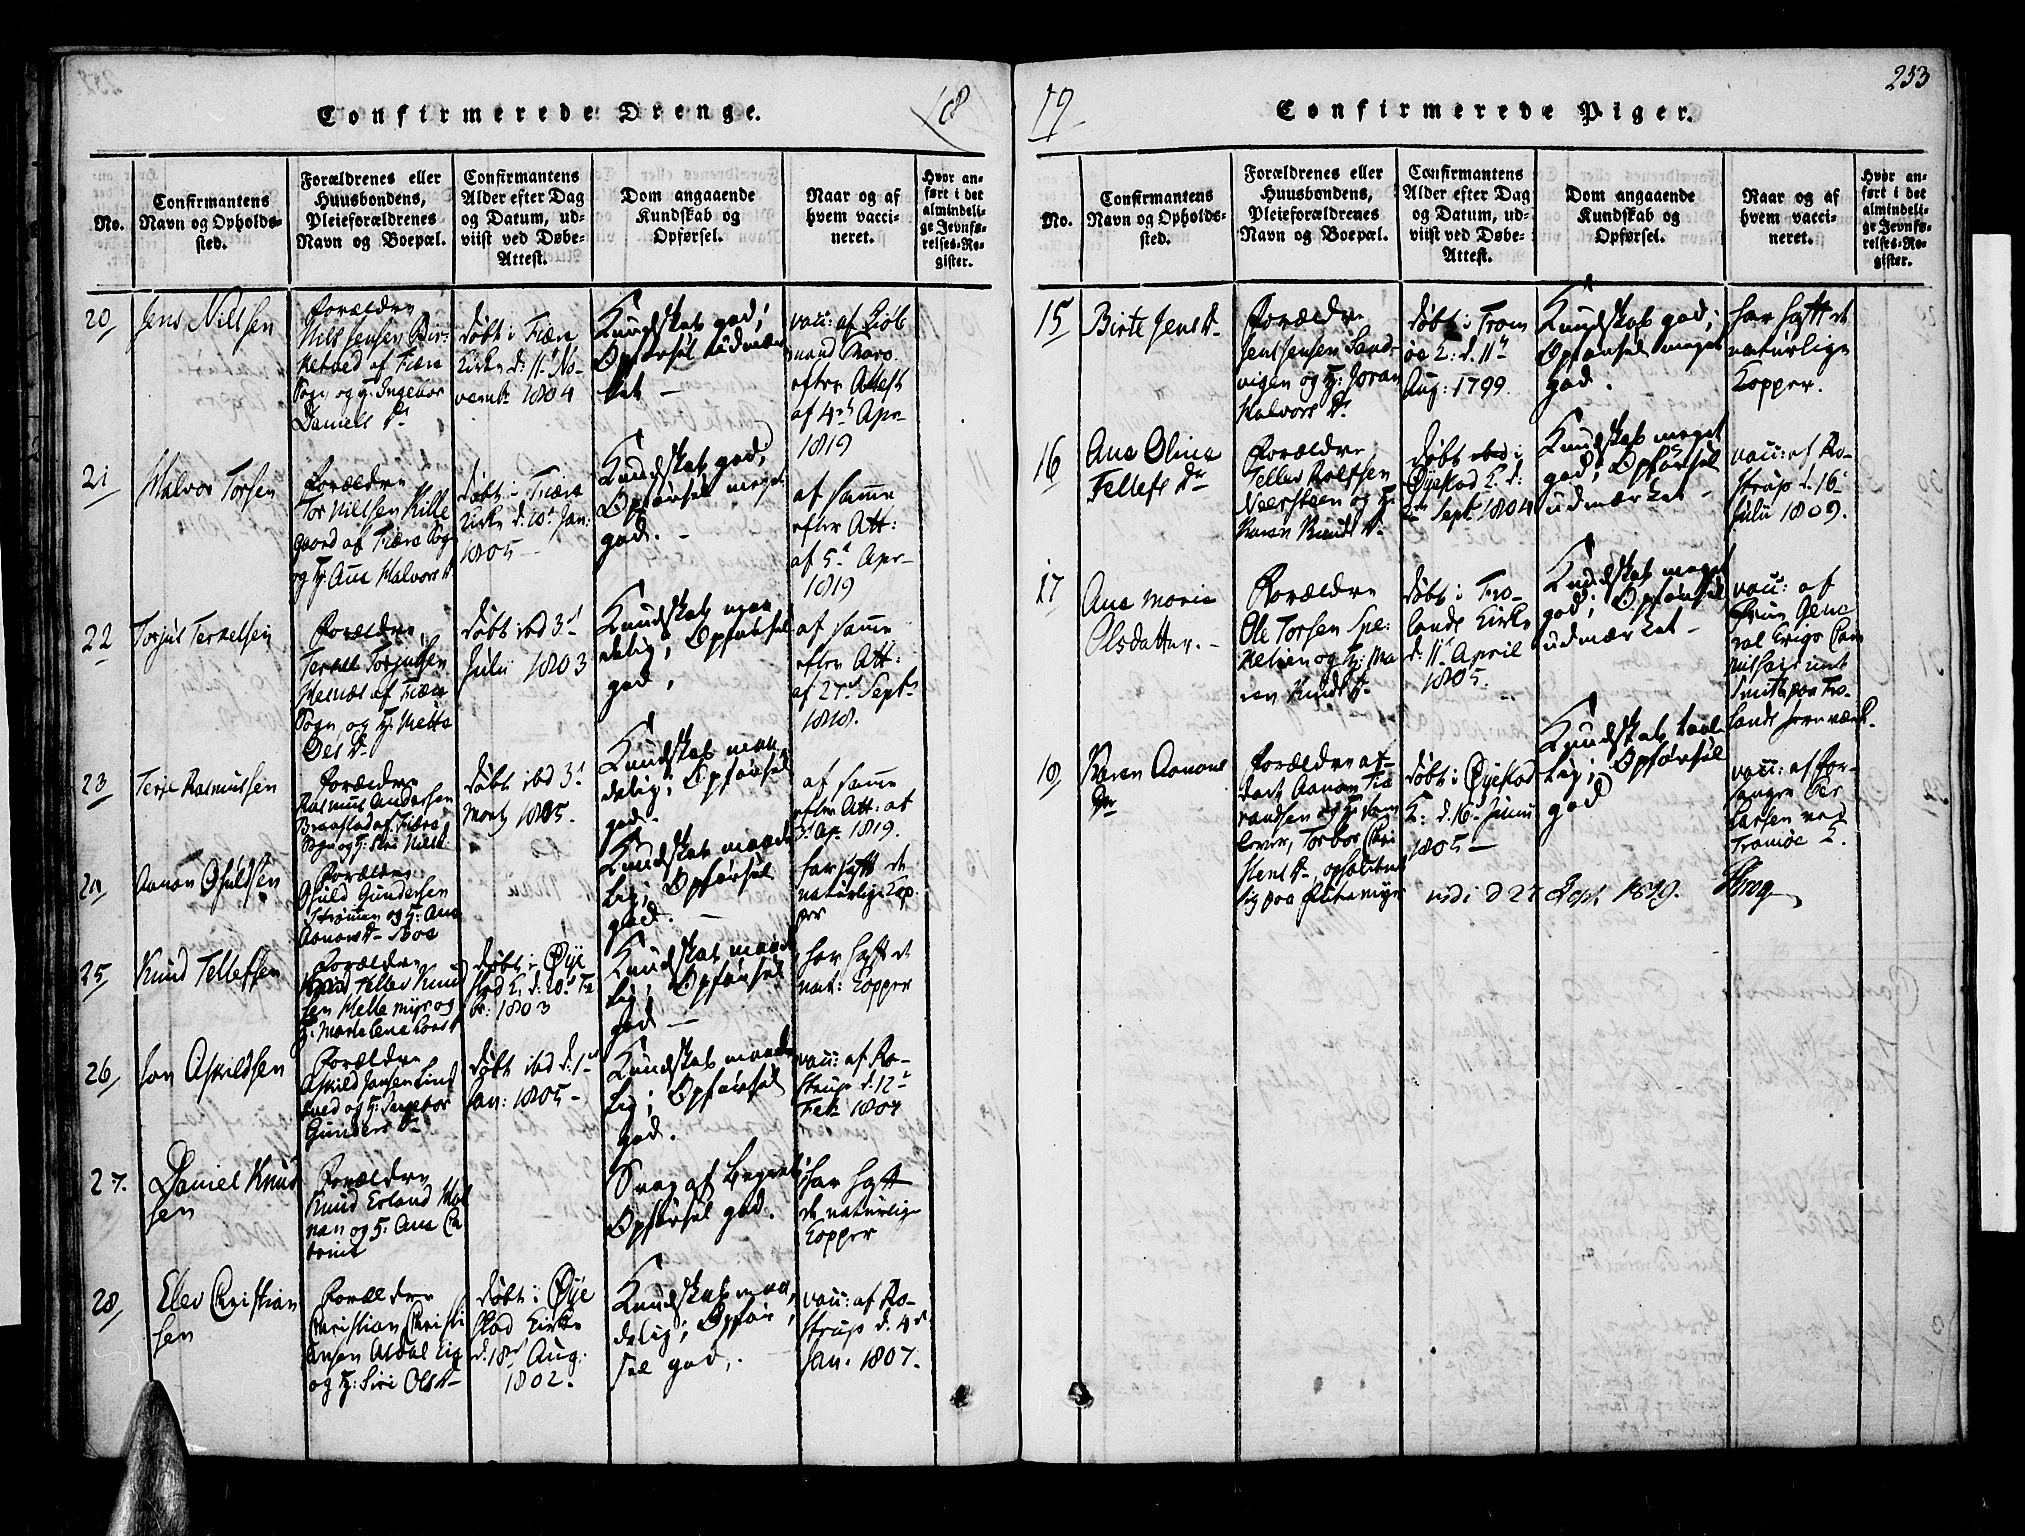 Confirmerede Drenge.
18
No.
Confirmantens
Navn og Opholds-
sted.
Forældrenes eller
Huusbondens,
Pleieforældrenes
Navn og Boepæl.
Confirmantens
Alder efter Dag
og Datum, ud-
viist ved Døbe-
Attest.
Dom angaaende
Kundskab og
Opførsel.
Naar og af
hvem vacci-
neret.
Hvor an-
ført i det
almindeli-
ge Jevnfø-
relses-Re-
gister.
20
Jens Nilsen
Forældre
Nils Jensen Bir-
ketved af Fiære
Sogn og H: Ingebor
Daniels D.
døbt i Fiære
Kirke d: 11t No-
vembr 1804
Kundskab god;
Opførsel udmær
ket –
vacc: af
efter Attest
af 4de Apr
1819
21
Halvor Torsen
Forældre
Tor Nielsen Kille
gaard af Fiære Sogn
og H: Ane Halvors D
døbt i Fiære
Kirke d: 20 Jan:
1805 –
Kundskab god,
Opførsel meget
god. –
af samme
efter Att:
af 5t Apr–
1819
22
Torjus Terkelsen
Forældre
Terkel Torjussen
Hesnæs af Fiære
Sogn og H: Mette
Oles D
døbt ibd 3d
Julii 1803
Kundskab maa
delig; Opførsel
god,
af samme
efter Att:
af 27d Sept
1818.
23
Terje Rasmussen
Forældre
Rasmus Andersen
Braastad af Fiære
Sogn og H: Siri Nilsd.
døbt ibd 3d
Marts 1805.
Kundskab maa
delig; Opførsel
god.
af samme
efter Att: af
3d Ap. 1819.
24
Aanon Osuldsen
Forældre
Osuld Gundersen
Strømmen og H: Ane
Aanons D
Kundskab maade
lig; Opførsel
god. –
har haft de
naturlige Kop
per
25
Knud Tellefsen
Forældre
Tellev Knud
sen Hellemyr og
H: Marte Lene Lars D
døbt i Øye
stad K. d: 20d Fe
br: 1803
Kundskab maade
lig; Opførsel
god –
har haft de
nat: Kopper
26
Jon Askildsen
Forældre
Askild Jonsen Lind
tved og H: Ingebor
Gunders D
døbt ibd d: 1ste
Jan: 1805 –
Kundskab maade
lig; Opførsel
god.
vacc: af Ro-
strup d. 12t
Feb: 1807
27.
Daniel Knud
sen
Forældre
Knud Erland
og H: Ane Ca
trine
Svag af Begreb
Opførsel god.
har haft
de naturlige
Kopper
28
Elev Christian
sen
Forældre
Christian Christi
ansen Asdal Eie
og H: Siri Ols D
døbt i Øye
stad Kirke
d. 18de Aug:
1802.
Kundskab maa
delig; Opfør
sel god. –
vacc: af Ro-
strup d. 4de
Jan: 1807.
19
Confirmerede Piger.
253
No.
Confirmantens
Navn og Opholds-
sted.
Forældrenes eller
Huusbondens,
Pleieforældrenes
Navn og Boepæl.
Confirmantens
Alder efter Dag
og Datum, ud-
viist ved Døbe-
Attest.
Dom angaaende
Kundskab og
Opførsel.
Naar og af
hvem vacci-
neret.
Hvor an-
ført i det
almindeli-
ge Jevnfø-
relses-Re-
gister.
15
Birte Jens D
Forældre
Jens Jensen Sand-
vigen og H: Joran
Halvors D.
døbt i Trom
øe K: d. 11t
Aug: 1799.
Kundskab god;
Opførsel meget
god.
har haft de
naturlige
Kopper.
16
Ane Oline
Tellefs Dr
Forældre
Tellev Rolfsen
Neersteen og H:
Karen Knuds D.
døbt i
Øyestad K. d:
Sept 1804
Kundskab meget
god; Opførsel
udmærket –
vacc: af Ro-
strup d. 16t
Julii 1809.
17
Ane Marie
Olsdatter. –
Forældre
Ole Torsen Spe-
kelien og H: Ma
ren Knuds D
døbt i Fro-
lands Kirke
d. 11t April
1805.
Kundskab meget
god; Opførsel
udmærket –
vacc: af
Smith paa Fro-
lands Jernværk.
18
Karen Aanons
Dr
Forældre af-
døde Aanon Tie
randsen og H: som
lever, Torbor Chri
stens D, opholder
sig paa Flekemyr
døbt i Øyestad
K: d. 16 Junii
1805 –
Kundskab taal
lig; Opførsel
god
vacc: af For-
sanger Per
Larsen ved
Tromøe K.
vidi d 27 Sept 1819. Krog